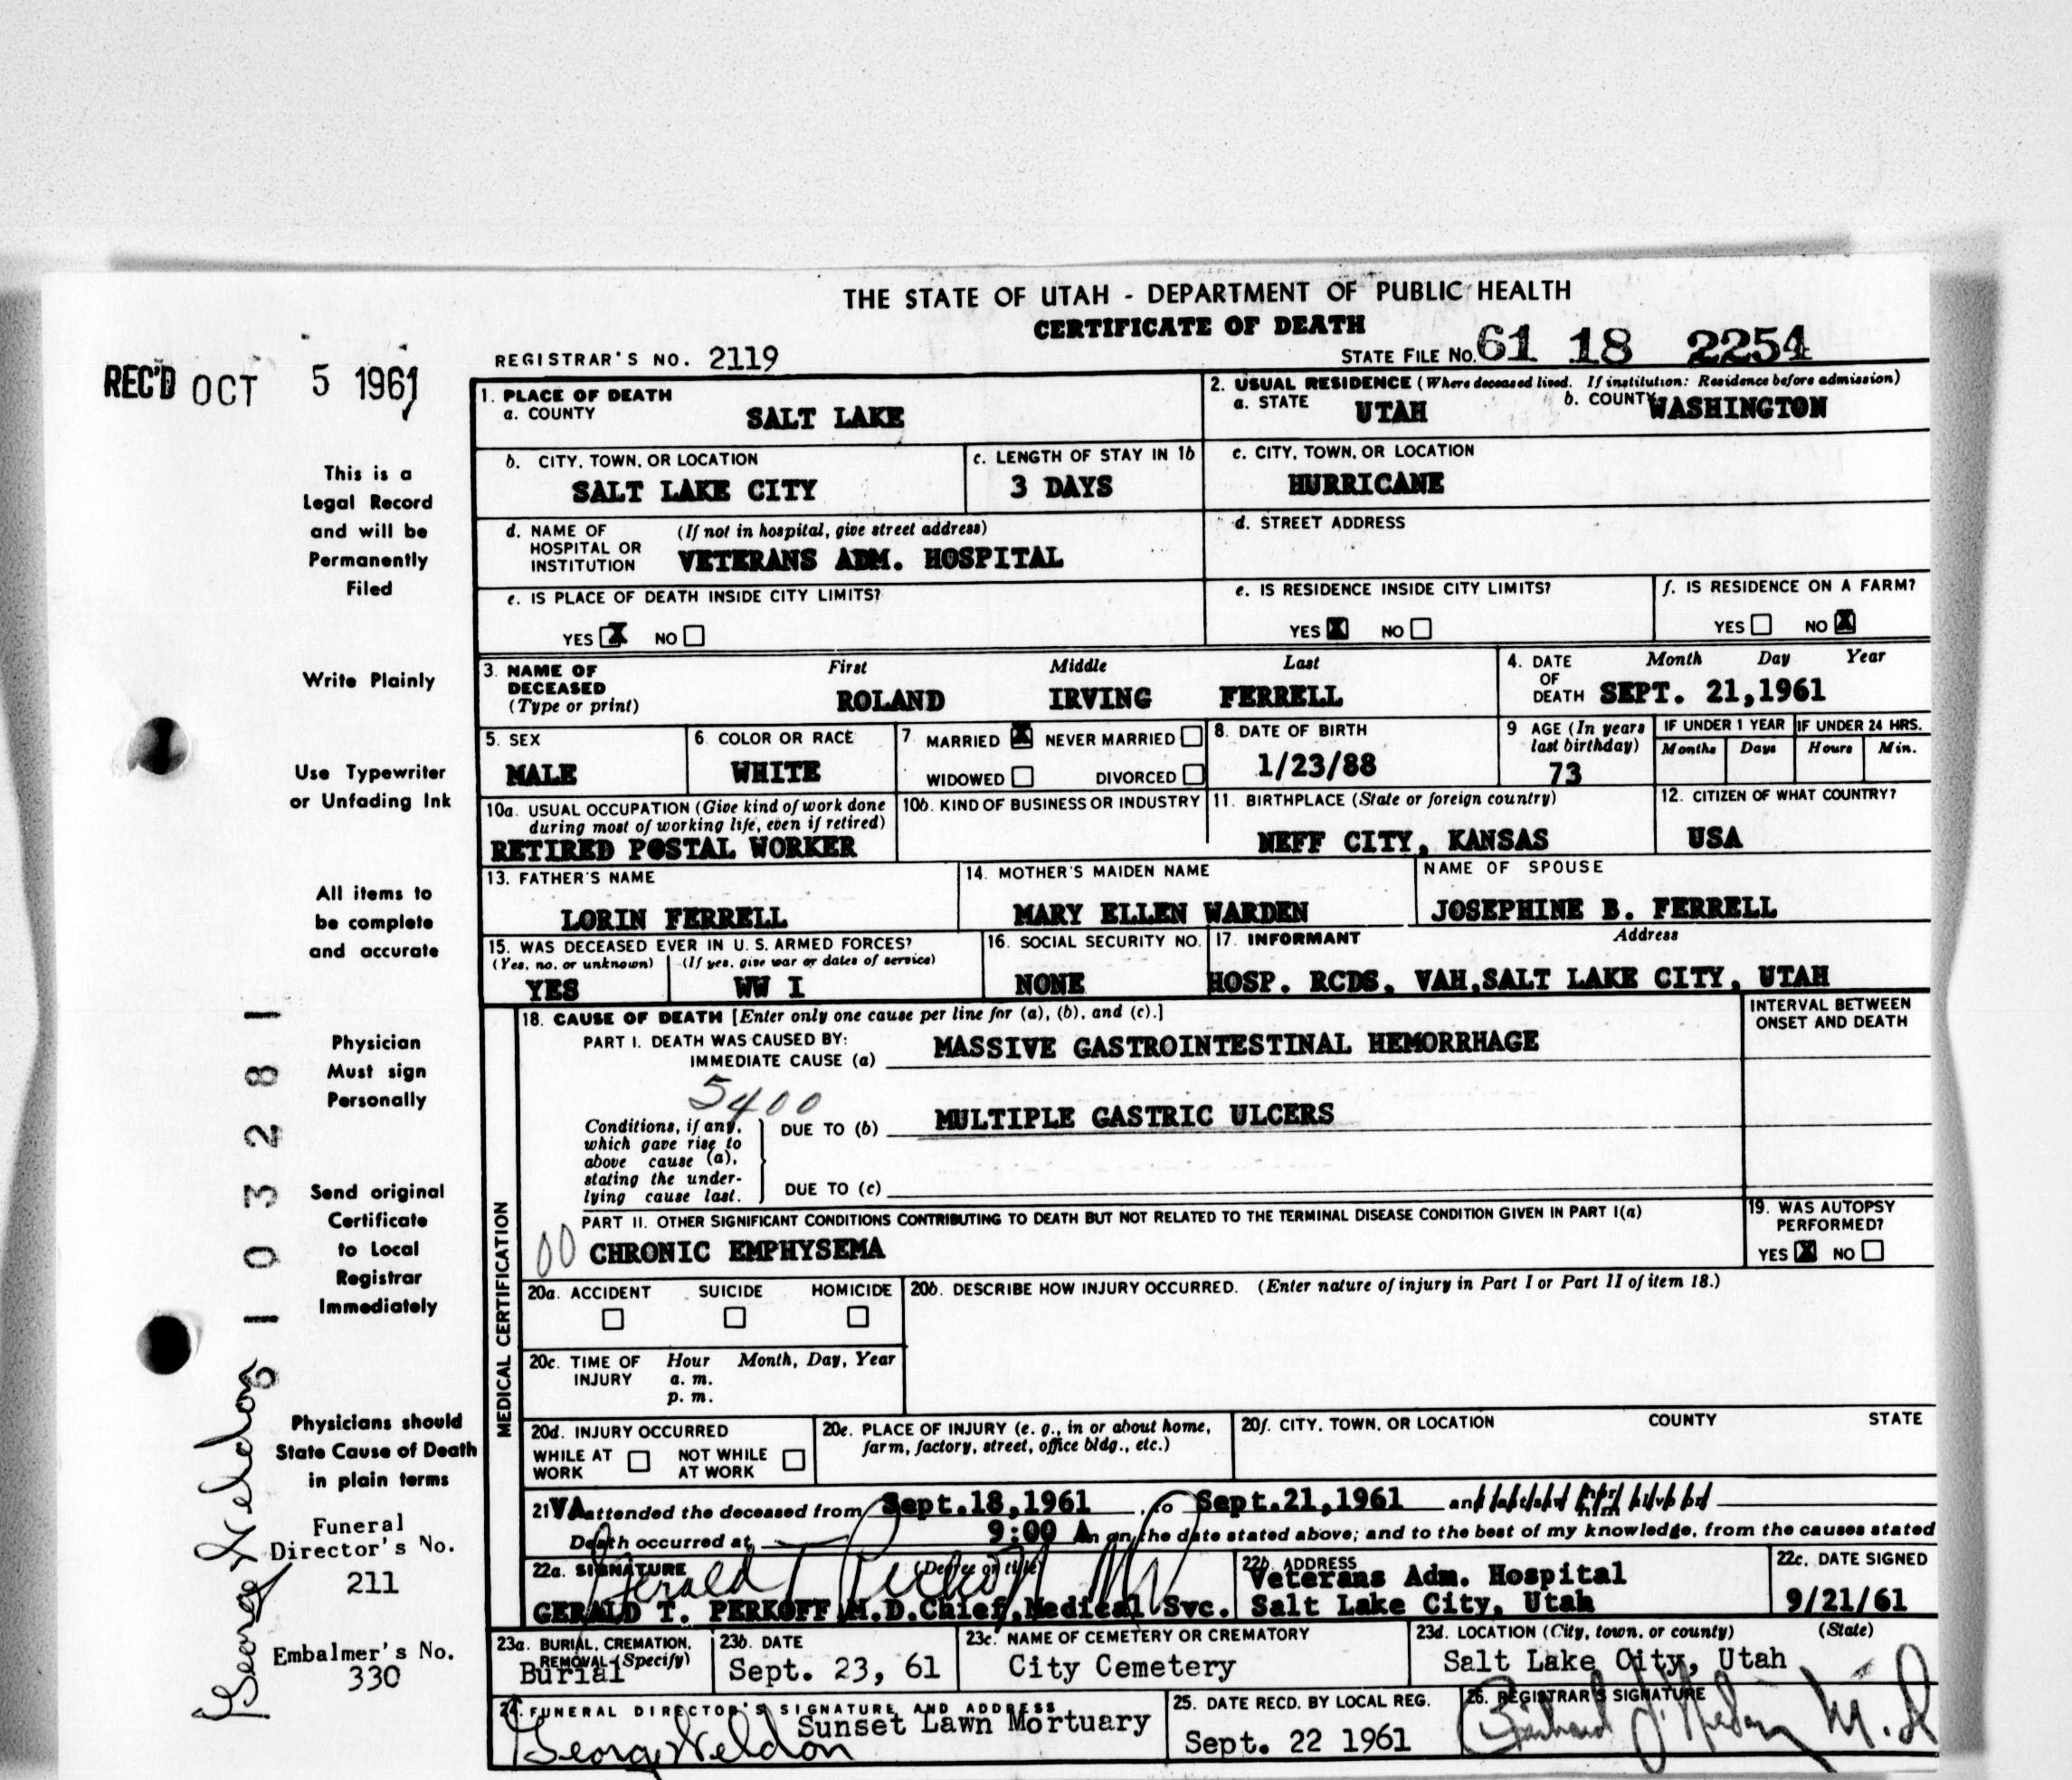 THE STATE OF UTAH - DEPARTMENT OF PUBLIC HEALTH
CERTIFICATE OF DEATH
REC'D OCT 5 1961
REGISTRAR'S NO. 2119
STATE FILE NO. 61 18 2254
1. PLACE OF DEATH
a. COUNTY SALT LAKE
2. USUAL RESIDENCE (Where deceased lived. If institution: Residence before admission)
a. STATE UTAH b. COUNTY WASHINGTON
b. CITY, TOWN, OR LOCATION
SALT LAKE CITY
c. LENGTH OF STAY IN 1b
3 DAYS
c. CITY, TOWN, OR LOCATION
HURRICANE
d. NAME OF HOSPITAL OR INSTITUTION (If not in hospital, give street address)
VETERANS ADM. HOSPITAL
d. STREET ADDRESS
e. IS PLACE OF DEATH INSIDE CITY LIMITS?
YES X NO
e. IS RESIDENCE INSIDE CITY LIMITS?
YES X NO
f. IS RESIDENCE ON A FARM?
YES NO X
3. NAME OF DECEASED (Type or print)
First Middle Last
ROLAND IRVING FERRELL
4. DATE OF DEATH Month Day Year
SEPT. 21,1961
5. SEX
MALE
6. COLOR OR RACE
WHITE
7. MARRIED X NEVER MARRIED
WIDOWED DIVORCED
8. DATE OF BIRTH
1/23/88
9 AGE (In years last birthday)
73
IF UNDER 1 YEAR IF UNDER 24 HRS.
Months Days Hours Min.
10a. USUAL OCCUPATION (Give kind of work done during most of working life, even if retired)
RETIRED POSTAL WORKER
10b. KIND OF BUSINESS OR INDUSTRY
11. BIRTHPLACE (State or foreign country)
NEFF CITY, KANSAS
12. CITIZEN OF WHAT COUNTRY?
USA
13. FATHER'S NAME
LORIN FERRELL
14. MOTHER'S MAIDEN NAME
MARY ELLEN WARDEN
NAME OF SPOUSE
JOSEPHINE B. FERRELL
15. WAS DECEASED EVER IN U. S. ARMED FORCES?
(Yes, no, or unknown) (If yes, give war or dates of service)
YES WW I
16. SOCIAL SECURITY NO.
NONE
17. INFORMANT Address
HOSP. RCDS, VAH,SALT LAKE CITY, UTAH
MEDICAL CERTIFICATION
18. CAUSE OF DEATH [Enter only one cause per line for (a), (b), and (c).]
INTERVAL BETWEEN ONSET AND DEATH
PART I. DEATH WAS CAUSED BY:
IMMEDIATE CAUSE (a) MASSIVE GASTROINTESTINAL HEMORRHAGE
5400
Conditions, if any, which gave rise to above cause (a), stating the underlying cause last.
DUE TO (b) MULTIPLE GASTRIC ULCERS
DUE TO (c)
PART II. OTHER SIGNIFICANT CONDITIONS CONTRIBUTING TO DEATH BUT NOT RELATED TO THE TERMINAL DISEASE CONDITION GIVEN IN PART I(a)
00 CHRONIC EMPHYSEMA
19. WAS AUTOPSY PERFORMED?
YES X NO
20a. ACCIDENT SUICIDE HOMICIDE
20b. DESCRIBE HOW INJURY OCCURRED. (Enter nature of injury in Part I or Part II of item 18.)
20c. TIME OF INJURY Hour Month, Day, Year
a. m.
p. m.
20d. INJURY OCCURRED
WHILE AT WORK NOT WHILE AT WORK
20e. PLACE OF INJURY (e. g., in or about home, farm, factory, street, office bldg., etc.)
20f. CITY, TOWN, OR LOCATION COUNTY STATE
21 VA attended the deceased from Sept.18,1961, to Sept.21,1961 and last saw
Death occurred at 9:00 A m on the date stated above; and to the best of my knowledge, from the causes stated
22a. SIGNATURE (Degree or title)
Gerald T Perkoff MD
GERALD T. PERKOFF,M.D.Chief,Medical Svc.
22b. ADDRESS
Veterans Adm. Hospital
Salt Lake City, Utah
22c. DATE SIGNED
9/21/61
23a. BURIAL, CREMATION, REMOVAL (Specify)
Burial
23b. DATE
Sept. 23, 61
23c. NAME OF CEMETERY OR CREMATORY
City Cemetery
23d. LOCATION (City, town, or county) (State)
Salt Lake City, Utah
24. FUNERAL DIRECTOR'S SIGNATURE AND ADDRESS
Sunset Lawn Mortuary
George Weldon
25. DATE RECD. BY LOCAL REG.
Sept. 22 1961
26. REGISTRAR'S SIGNATURE
M.D
This is a
Legal Record
and will be
Permanently
Filed
Write Plainly
Use Typewriter
or Unfading Ink
All items to
be complete
and accurate
Physician
Must sign
Personally
Send original
Certificate
to Local
Registrar
Immediately
Physicians should
State Cause of Death
in plain terms
Funeral
Director's No.
211
Embalmer's No.
330
6 1 0 3 2 8 1
George Weldon